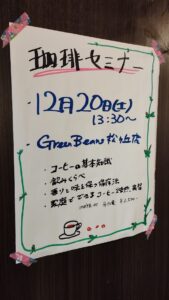 珈琲セミナー
12月20日(土)
13:30〜
Green Beans 松ヶ丘店
・コーヒーの基本知識
・飲みくらべ
・香りと味を保つ保存法
・家庭でできるコーヒー